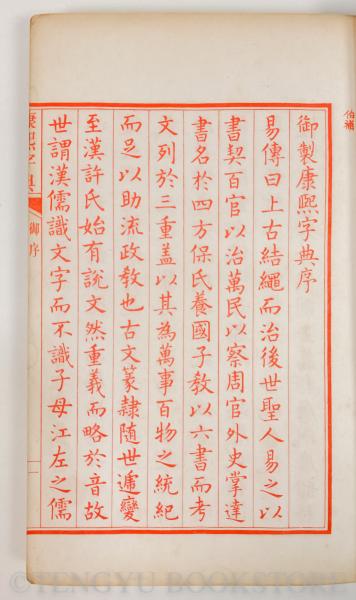 御製康熙字典序
易傳曰上古結繩而治後世聖人易之以
書契百官以治萬民以察周官外史掌達
書名於四方保氏養國子教以六書而考
文列於三重盖以其為萬事百物之統紀
而足以助流政教也古文篆隸隨世遞變
至漢許氏始有說文然重義而略於音故
世謂漢儒識文字而不識子母江左之儒
康熙字典
御序
一
©TENGYU BOOKSTORE